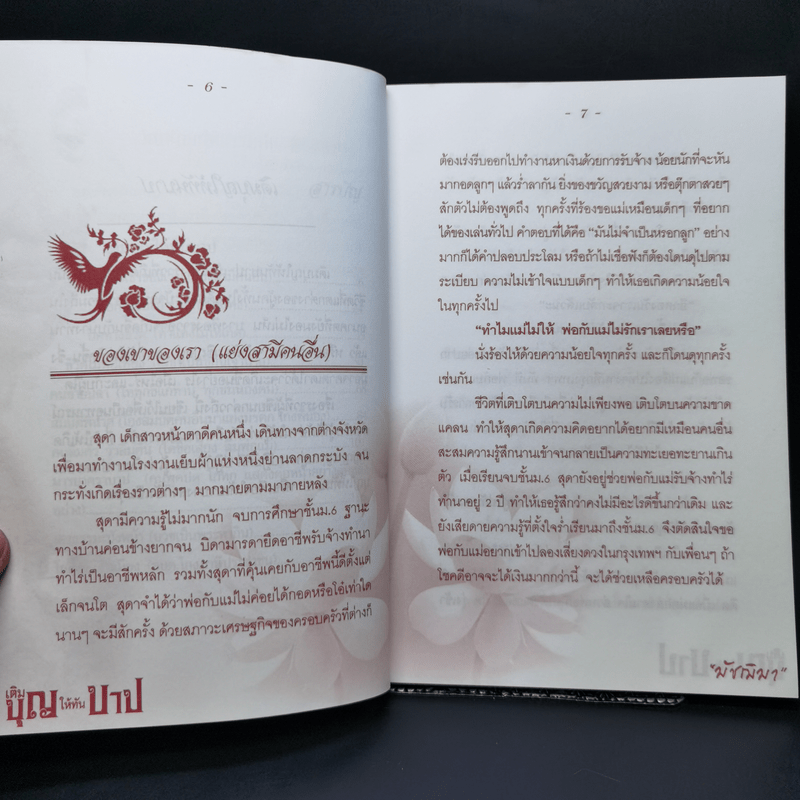 - 6 -
ของเขาของเรา (แย่งสามีคนอื่น)
สุดา เด็กสาวหน้าตาดีคนหนึ่ง เดินทางจากต่างจังหวัด
เพื่อมาทำงานโรงงานเย็บผ้าแห่งหนึ่งย่านลาดกระบัง จน
กระทั่งเกิดเรื่องราวต่างๆ มากมายตามมาภายหลัง
สุดามีความรู้ไม่มากนัก จบการศึกษาชั้นม.6 ฐานะ
ทางบ้านค่อนข้างยากจน บิดามารดายึดอาชีพรับจ้างทำนา
ทำไร่เป็นอาชีพหลัก รวมทั้งสุดาที่คุ้นเคยกับอาชีพนี้ดีตั้งแต่
เล็กจนโต สุดาจำได้ว่าพ่อกับแม่ไม่ค่อยได้กอดหรือโอ๋เท่าใด
นานๆ จะมีสักครั้ง ด้วยสภาวะเศรษฐกิจของครอบครัวที่ต่างก็
เติม
บุญ ให้ทัน บาป
- 7 -
ต้องเร่งรีบออกไปทำงานหาเงินด้วยการรับจ้าง น้อยนักที่จะหัน
มากอดลูกๆ แล้วร่ำลากัน ยิ่งของขวัญสวยงาม หรือตุ๊กตาสวยๆ
สักตัวไม่ต้องพูดถึง ทุกครั้งที่ร้องขอแม่เหมือนเด็กๆ ที่อยาก
ได้ของเล่นทั่วไป คำตอบที่ได้คือ “มันไม่จำเป็นหรอกลูก” อย่าง
มากก็ได้คำปลอบประโลม หรือถ้าไม่เชื่อฟังก็ต้องโดนดุไปตาม
ระเบียบ ความไม่เข้าใจแบบเด็กๆ ทำให้เธอเกิดความน้อยใจ
ในทุกครั้งไป
“ทำไมแม่ไม่ให้ พ่อกับแม่ไม่รักเราเลยหรือ”
นั่งร้องไห้ด้วยความน้อยใจทุกครั้ง และก็โดนดุทุกครั้ง
เช่นกัน
ชีวิตที่เติบโตบนความไม่เพียงพอ เติบโตบนความขาด
แคลน ทำให้สุดาเกิดความคิดอยากได้อยากมีเหมือนคนอื่น
สะสมความรู้สึกนานเข้าจนกลายเป็นความทะเยอทะยานเกิน
ตัว เมื่อเรียนจบชั้นม.6 สุดายังอยู่ช่วยพ่อกับแม่รับจ้างทำไร่
ทำนาอยู่ 2 ปี ทำให้เธอรู้สึกว่าคงไม่มีอะไรดีขึ้นกว่าเดิม และ
ยังเสียดายความรู้ที่ตั้งใจร่ำเรียนมาถึงชั้นม.6 จึงตัดสินใจขอ
พ่อกับแม่อยากเข้าไปลองเสี่ยงดวงในกรุงเทพฯ กับเพื่อนๆ ถ้า
โชคดีอาจจะได้เงินมากกว่านี้ จะได้ช่วยเหลือครอบครัวได้
"มัชฌิมา"